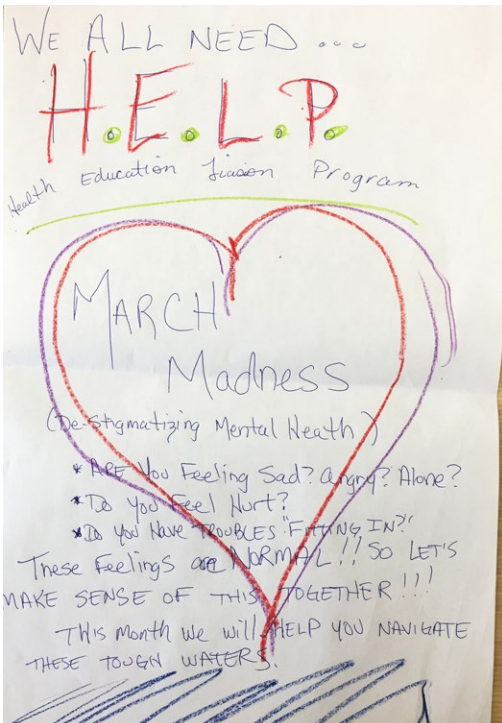 WE ALL NEED ...
H.E.L.P.
Health Education Liaison Program
MARCH
Madness
(De-Stigmatizing Mental Heath)
* ARE YOU Feeling Sad? Angry? Alone?
* Do you Feel Hurt?
* DO YOU HAVE TROUBLES "FITTING IN?"
These Feelings are NORMAL!! SO LET'S
MAKE SENSE OF THIS TOGETHER!!!
THIS MONTH WE WILL HELP YOU NAVIGATE
THESE TOUGH WATERS.